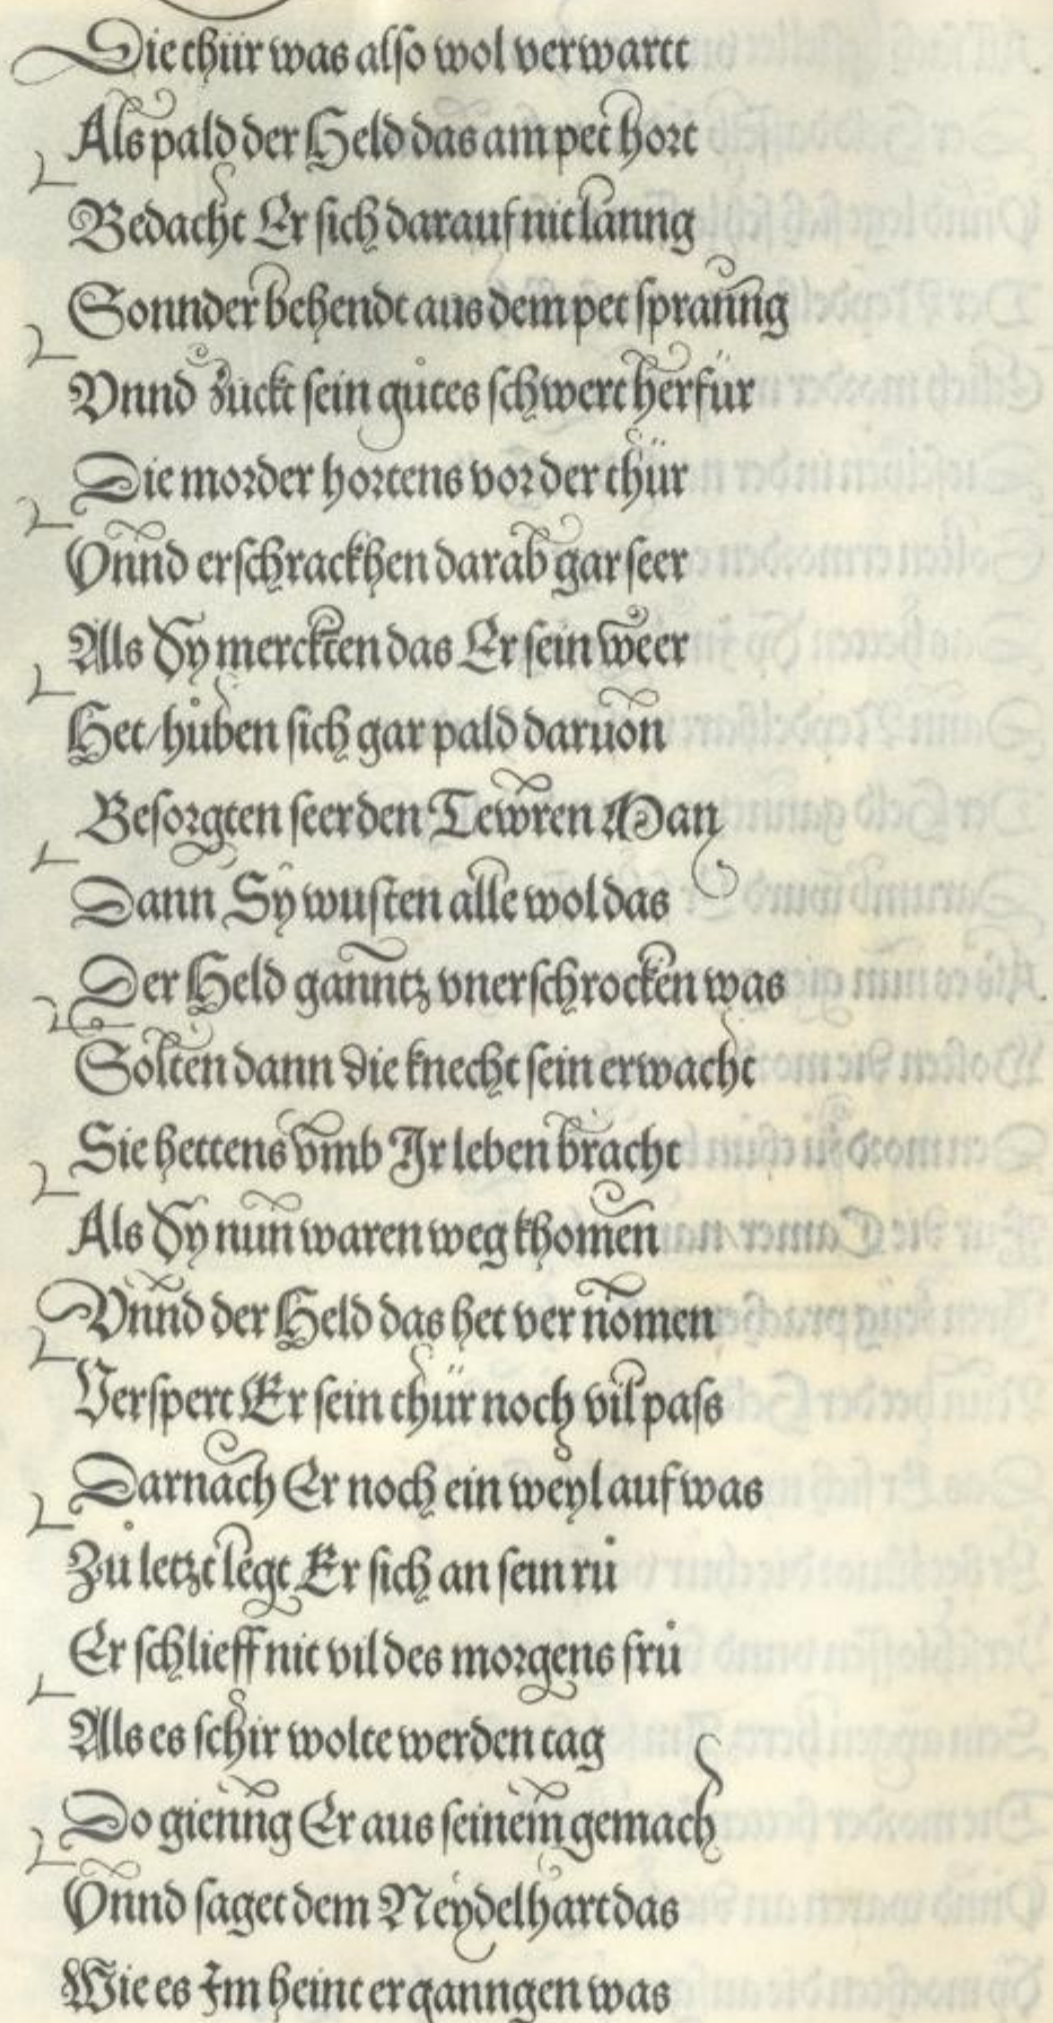 Die thür was also wol verwartt
Als pald der Held das am pet hort
Bedacht Er sich darauf nit lanng
Sonnder behendt aus dem pet spranng
Vnnd zuckt sein gůtes schwert herfür
Die morder hortens vor der thür
Vnnd erschrackhen darab gar seer
Als Sy merckten das Er sein weer
Het/ hůben sich gar pald daruon
Besorgten seer den Tewren Man
Dann Sy wusten alle wol das
Der Held ganntz vnerschrocken was
Solten dann die knecht sein erwacht
Sie hettens vmb Ir leben bracht
Als Sy nun waren weg khomen
Vnnd der Held das het ver nomen
Verspert Er sein thür noch vil pass
Darnach Er noch ein weyl auf was
Zů letzt legt Er sich an sein rů
Er schlieff nit vil des morgens frů
Als es schir wolte werden tag
Do gienng Er aus seinem gemach
Vnnd saget dem Neydelhart das
Wie es Im heint erganngen was